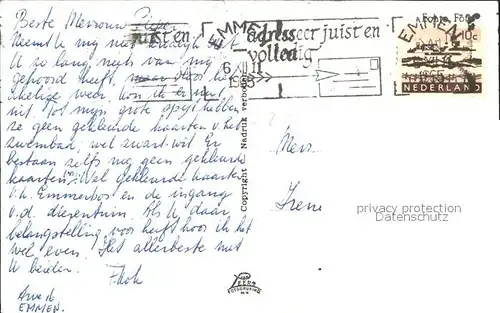 Beste Mevrouw
Neemt U mij niet kwalijk dat
U zo lang niets van mij
gehoord heeft, door het
akelige weer, kon ik er niet
uit. Tot mijn grote spijt hebben
ze geen gekleurde kaarten v. het
zwembad, wel zwart-wit. Er
bestaan zelfs nog geen gekleurde
kaarten. Wel gekleurde kaarten
v.h. Emmerbos en de ingang
v.d. dierentuin. Als U daar
belangstelling voor heeft hoor ik het
wel even. Het allerbeste met
U beiden.
EMMEN.
juist en
EMMEN
adresseer juist en
volledig
6 VII
1965
EMMEN
10c
NEDERLAND
Copyright Nadruk verboden
privacy protection
Datenschutz
LEERS
FOTODRUKKERIJ
N.V.